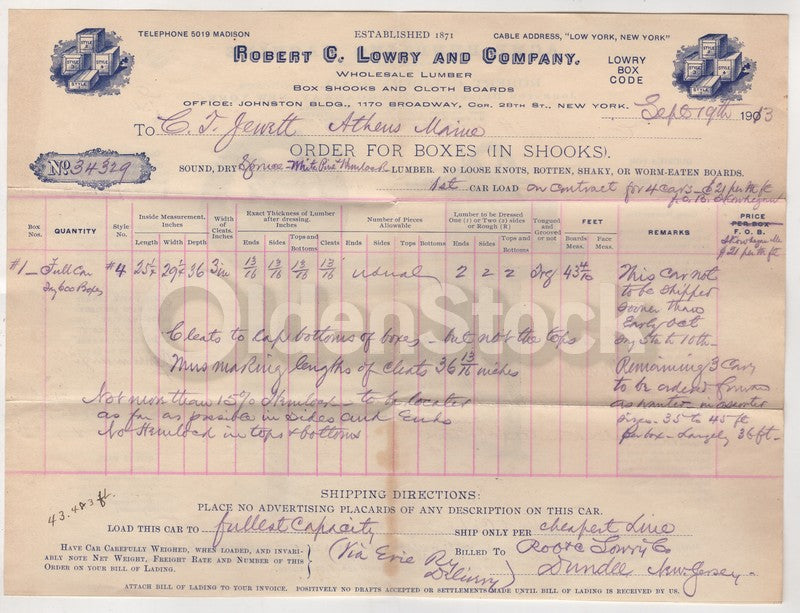 TELEPHONE 5019 MADISON
ESTABLISHED 1871
CABLE ADDRESS, "LOW YORK, NEW YORK"
ROBERT C. LOWRY AND COMPANY.
WHOLESALE LUMBER
BOX SHOOKS AND CLOTH BOARDS
LOWRY
BOX
CODE
OFFICE: JOHNSTON BLDG., 1170 BROADWAY, COR. 28TH ST., NEW YORK. Sept 19th 1913
To C. T. Jewett Athens Maine
ORDER FOR BOXES (IN SHOOKS).
No. 34329
SOUND, DRY Spruce White Pine Hemlock LUMBER. NO LOOSE KNOTS, ROTTEN, SHAKY, OR WORM-EATEN BOARDS.
1st CAR LOAD on contract for 4 cars - $21 per M ft
f.o.b. Skowhegan
Box Nos. QUANTITY Style No. Inside Measurement. Inches Length Width Depth Width of Cleats. Inches Exact Thickness of Lumber after dressing. Inches Ends Sides Tops and Bottoms Cleats Number of Pieces Allowable Ends Sides Tops Bottoms Lumber to be Dressed One (1) or Two (2) sides or Rough (R) Ends Sides Tops and Bottoms Tongued and Grooved or not FEET Boards Meas. Face Meas. REMARKS PRICE PER BOX F. O. B.
Skowhegan Me
$21 per M ft
#1 - Full Car #4 36 3 in 13/16 13/16 13/16 13/16 usual 2 2 2
600 Boxes
This Car not
to be shipped
sooner than
Early Oct
5th to 10th -
Remaining 3 Cars
to be ordered
as wanted in assorted
sizes - 35 to 45 ft
per box - Largely 36 ft -
Cleats to lap bottoms of boxes - but not the tops
Thus making lengths of cleats 36 13/16 inches
Not more than 15% Hemlock - to be located
as far as possible in Sides and Ends
No Hemlock in tops & bottoms
OldenStock
43.483 ft.
SHIPPING DIRECTIONS:
PLACE NO ADVERTISING PLACARDS OF ANY DESCRIPTION ON THIS CAR.
LOAD THIS CAR TO fullest Capacity SHIP ONLY PER Cheapest Line
HAVE CAR CAREFULLY WEIGHED, WHEN LOADED, AND INVARI-
ABLY NOTE NET WEIGHT, FREIGHT RATE AND NUMBER OF THIS
ORDER ON YOUR BILL OF LADING.
(Via Erie Ry
Delivery)
BILLED TO Robt C Lowry Co
Dundee New Jersey -
ATTACH BILL OF LADING TO YOUR INVOICE. POSITIVELY NO DRAFTS ACCEPTED OR SETTLEMENTS MADE UNTIL BILL OF LADING IS RECEIVED BY US.